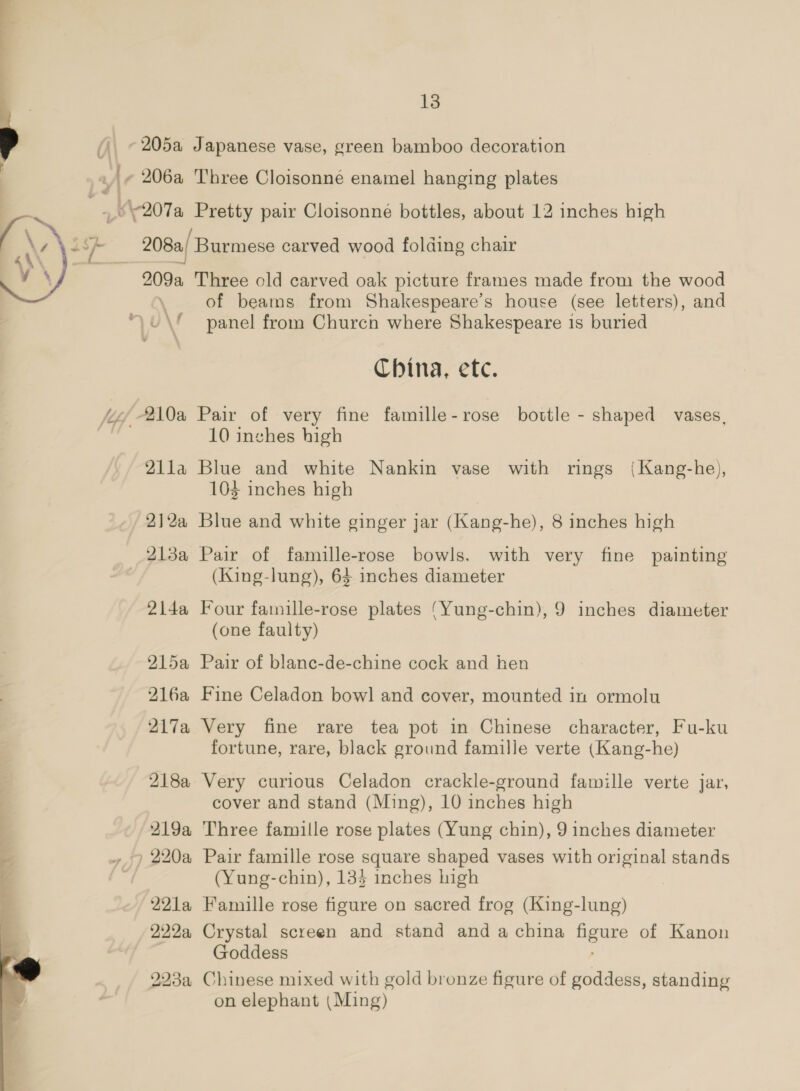 13
205a Japanese vase, green bamboo decoration
206a Three Cloisonné enamel hanging plates
207a Pretty pair Cloisonné bottles, about 12 inches high
208a Burmese carved wood folding chair
209a Three old carved oak picture frames made from the wood
of beams from Shakespeare's house (see letters), and
panel from Church where Shakespeare is buried
China, etc.
210a Pair of very fine famille-rose bottle-shaped vases,
10 inches high
211a Blue and white Nankin vase with rings (Kang-he),
10½ inches high
212a Blue and white ginger jar (Kang-he), 8 inches high
213a Pair of famille-rose bowls. with very fine painting
(King-lung), 6½ inches diameter
214a Four famille-rose plates (Yung-chin), 9 inches diameter
(one faulty)
215a Pair of blanc-de-chine cock and hen
216a Fine Celadon bowl and cover, mounted in ormolu
217a Very fine rare tea pot in Chinese character, Fu-ku
fortune, rare, black ground famille verte (Kang-he)
218a Very curious Celadon crackle-ground famille verte jar,
cover and stand (Ming), 10 inches high
219a Three famille rose plates (Yung chin), 9 inches diameter
220a Pair famille rose square shaped vases with original stands
(Yung-chin), 13½ inches high
221a Famille rose figure on sacred frog (King-lung)
222a Crystal screen and stand and a china figure of Kanon
Goddess
223a Chinese mixed with gold bronze figure of goddess, standing
on elephant (Ming)